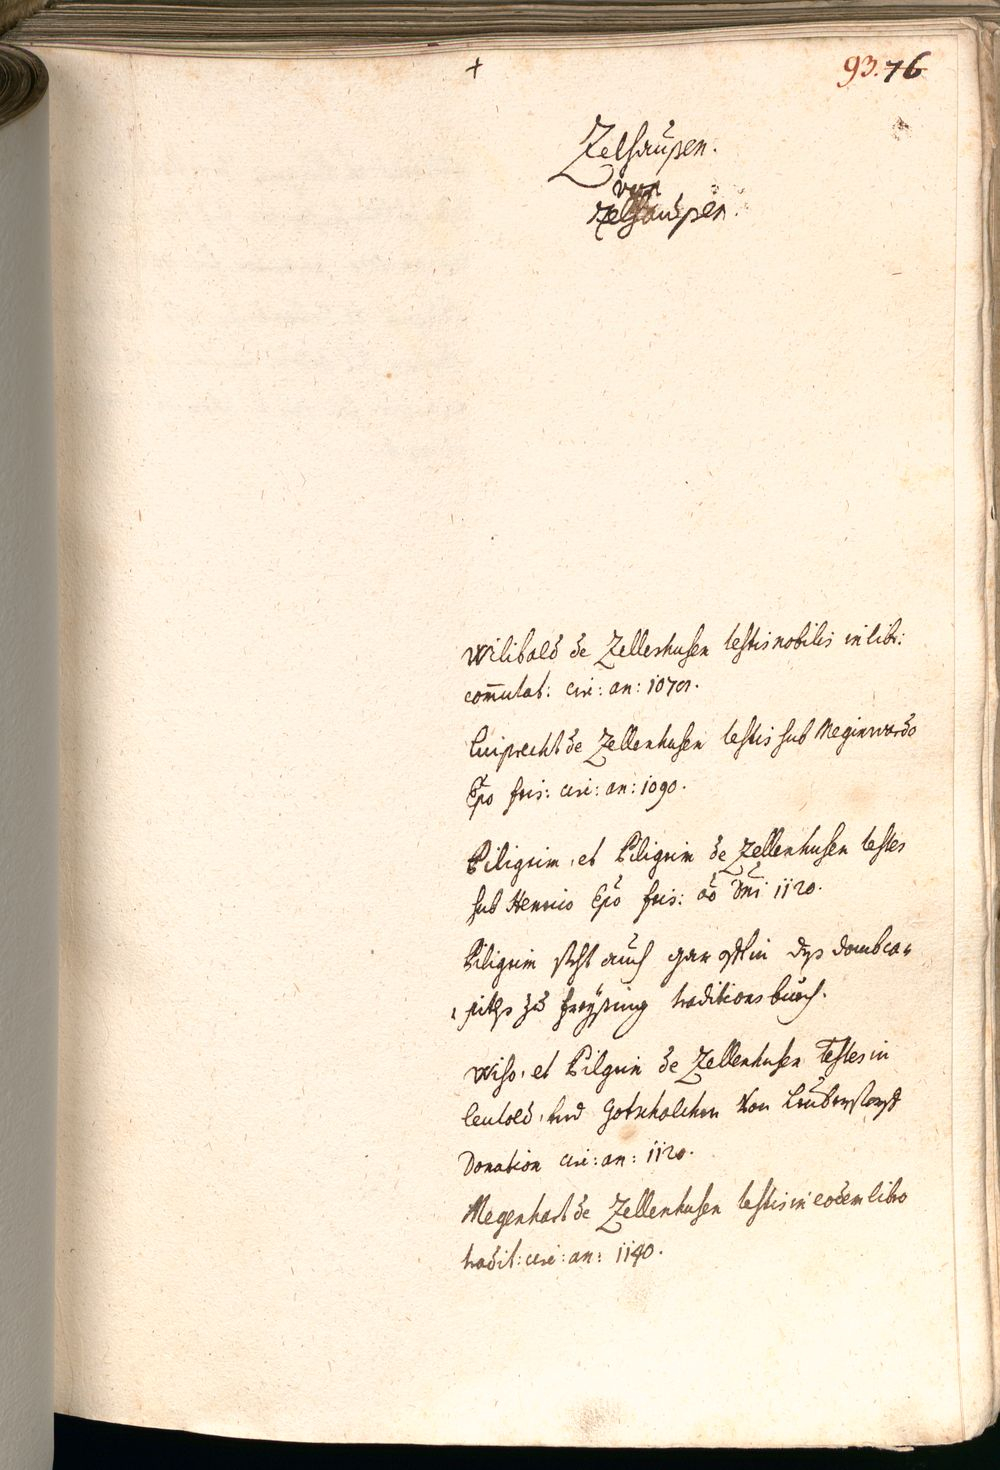 +
93. 76
Zelhausen.
von
Zelhausen.
Wilibald de Zelleshusen testis nobilis in libr:
com̄utat: circ: an: 1070.
Luiprecht de Zellenhusen testis sub Meginwardo
Epo fris: circ: an: 1090.
Piligrim, et Piligrim de Zellenhusen testes
sub Henrico Epo fris: ao Dni 1120.
Piligrim steht auch gar offt in dess dombca-
pitls zu freÿsing traditions buech.
Wiso, et Pilgrin de Zellenhusen Testes in
leutold, und Gotschalchen von
Donation circ: an: 1120.
Megenhart de Zellenhusen testis in eodem libro
tradit: circ: an: 1140.